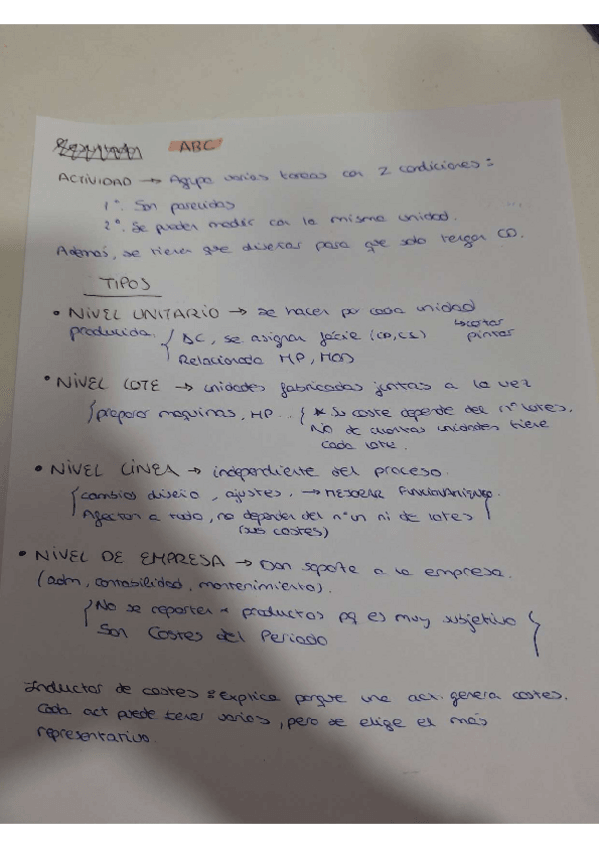 ABC
ACTIVIDAD → Agrupa varias tareas con 2 condiciones:
1º. Son parecidas
2º. Se pueden medir con la misma unidad.
Además, se tienen que diseñar para que solo tengan CD.
TIPOS
• NIVEL UNITARIO → se hacen por cada unidad
producida. { DC, se asignan fácil (CD, CI) ↳ cortar
pintar
Relacionada MP, MOD
• NIVEL LOTE → unidades fabricadas juntas a la vez
{ preparar maquinas, MP... { * Su coste depende del nº lotes.
NO de cuantas unidades tiene
cada lote.
• NIVEL LÍNEA → independiente del proceso.
{ cambios diseño, ajustes. → MEJORAR
Afectan a todo, no dependen del nº un ni de lotes }
(sus costes)
• NIVEL DE EMPRESA → Dan soporte a la empresa.
(adm, contabilidad, mantenimiento).
{ No se reparten a productos pq es muy subjetivo }
Son Costes del Periodo
Inductor de costes: explica porque una act. genera costes.
Cada act puede tener varios, pero se elige el más
representativo.